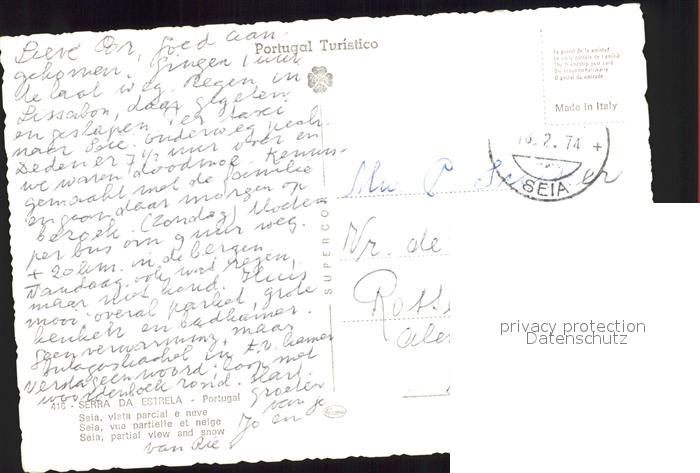 Portugal Turístico
Lieve Cor, goed aan-
gekomen. Gingen 1 uur
te laat weg. Regen in
Lissabon, daar gegeten
en geslapen per taxi
naar Seia. Onderweg pech.
Deden er 7½ uur over en
we waren doodmoe. Kennis
gemaakt met de familie
en gaan daar morgen op
bezoek. (Zondag) Moeten
per bus om 9 uur weg.
+ 20 km. in de bergen
Vandaag ook wat regen,
maar niet koud. Huis
mooi, overal parket, grote
keuken en badkamer.
Geen verwarming, maar
butagaskachel in t.v. kamer
Versta geen woord. Loop met
woordenboek rond. Hart.
groeten
van je
Jo en
van Rie
La postal de la amistad
La carte postale de l'amitié
The friendship post card
Die Freundschaftskarte
O postal da amizade
Made in Italy
16.2.74 +
SEIA
Mw P
Nr. de
Ross
SUPERCOR
416 - SERRA DA ESTRELA - Portugal
Seia, vista parcial e neve
Seia, vue partielle et neige
Seia, partial view and snow
privacy protection
Datenschutz